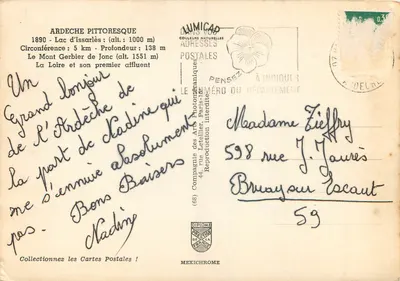 ARDECHE PITTORESQUE
1890 - Lac d'Issarlès: (alt.: 1000 m)
Circonférence : 5 km - Profondeur : 138 m
Le Mont Gerbier de Jonc (alt. 1551 m)
La Loire et son premier affluent
Un
Grand bonjour
de l'Ardèche de
la part de Nadine qui
ne s'ennuie absolument
pas. Bons Baisers
Nadine
Collectionnez les Cartes Postales !
LUMICAP
COULEURS NATURELLES
ADRESSES
POSTALES
PENSEZ
A INDIQUER
LE NUMÉRO DU DÉPARTEMENT
(68) Compagnie des Arts Photomécaniques
44, rue Letellier, Paris-15e
Reproduction interdite
MEXICHROME
Madame Zieffry
598 rue J. Jaurès
Bruay sur Escaut
59